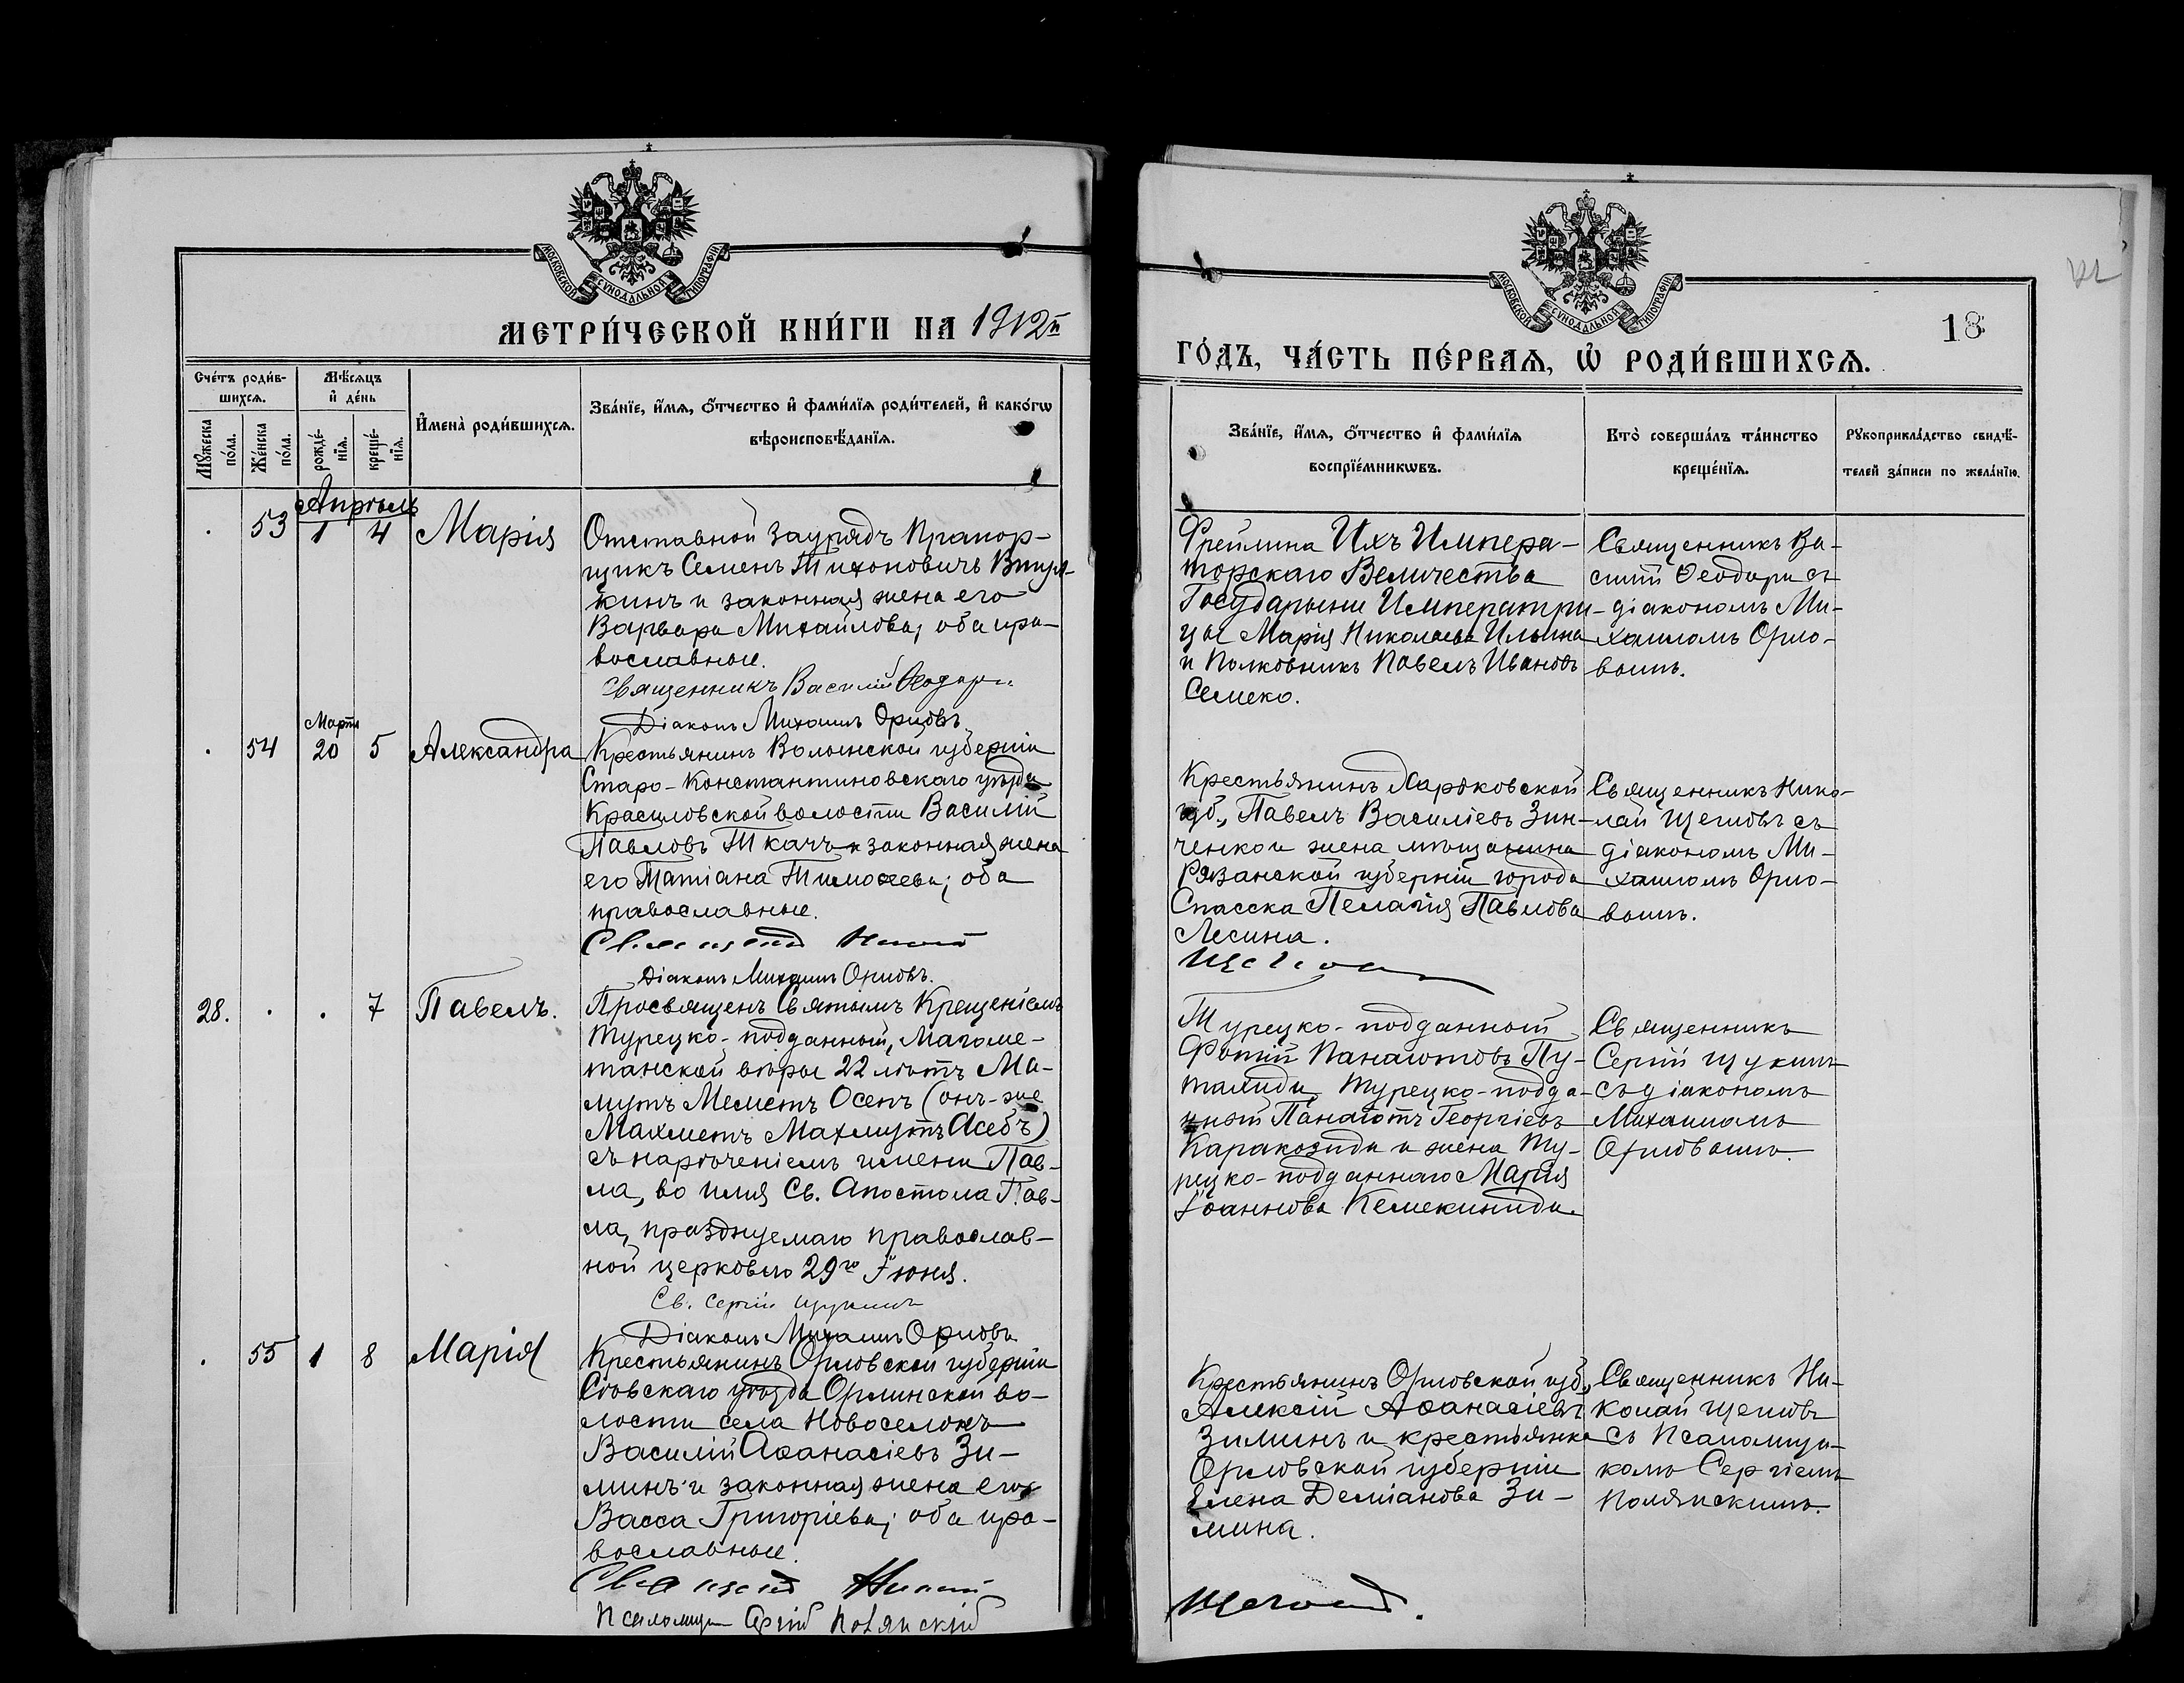 МОСКОВСКОЙ СѴНОДАЛЬНОЙ ТИПОГРАФІИ
МЕТРИ́ЧЕСКОЙ КНИ́ГИ НА 1912й
Сче́тъ роди́в-
шихсѧ.
Мѣ́сѧцъ
и҆ де́нь
И҆мена̀ роди́вшихсѧ.
Зва́нїе, и҆́мѧ, ѻ҆́тчество и҆ фами́лїѧ роди́телей, и҆ како́гѡ
вѣроисповѣ́данїѧ.
Мꙋ́жеска
по́ла.
Же́нска
по́ла.
рожде́-
нїѧ.
креще́-
нїѧ.
Апрѣль
. 53 1 4 Марія
Отставной зауряд Прапор-
щикъ Семенъ Тихоновичъ
кинъ и законная жена его
Варвара Михайлова, оба пра-
вославные.
Священникъ Василій Ѳеодори
Діаконъ Михаилъ Орловъ
Марта
. 54 20 5 Александра
Крестьянинъ Волынской губерніи
Старо-Константиновскаго уѣзда
Красиловской волости Василій
Павловъ Ткачъ и законная жена
его Татіана Тимоѳеева, оба
православные.
Священникъ Николай
Діаконъ Михаилъ Орловъ.
28. . . 7 Павелъ.
Просвященъ Святымъ Крещеніемъ
Турецко-подданный, Магоме-
танской вѣры 22 лѣтъ Ма-
мутъ Меметъ Осепъ (онъ-же
Махметъ Махмутъ Асебъ)
съ нарѣченіемъ имени Пав-
ла, во имя Св. Апостола Пав-
ла, празднуемаго православ-
ной церковью 29го Іюня.
Св. Сергій Щукинъ
Діаконъ Михаилъ Орловъ
. 55 1 8 Марія
Крестьянинъ Орловской губерніи
Сѣвскаго уѣзда Орлинской во-
лости села Новоселокъ
Василій Аѳанасіевъ Зи-
минъ и законная жена его
Васса Григоріева, оба пра-
вославные.
Священникъ Николай
Псаломщ Сергій Полянскій
МОСКОВСКОЙ СѴНОДАЛЬНОЙ ТИПОГРАФІИ
18
ГО́ДЪ, ЧА́СТЬ ПЕ́РВАѦ, Ѡ҆ РОДИ́ВШИХСѦ.
Зва́нїе, и҆́мѧ, ѻ҆́тчество и҆ фами́лїѧ
воспрїе́мникѡвъ.
Кто̀ соверша́лъ та́инство
креще́нїѧ.
Рꙋкоприкла́дство свидѣ́-
телей за́писи по жела́нїю.
Фрейлина Ихъ Импера-
торскаго Величества
Государыни Императри-
цы Марія Николаева Ильина
и Полковникъ Павелъ Ивановъ
Семеко.
Священникъ Ва-
силій Ѳеодори съ
діакономъ Ми-
хаиломъ Орло-
вымъ.
Крестьянинъ Харьковской
губ., Павелъ Василіевъ Зин-
ченко и жена мѣщанина
Рязанской губерніи города
Спасска Пелагія Павлова
Лесина.
Щегловъ
Священникъ Нико-
лай Щегловъ съ
діакономъ Ми-
хаиломъ Орло-
вымъ.
Турецко-подданный
Фотій Панаіотовъ Пу-
талиди, Турецко-подда-
нный Панаіотъ Георгіевъ
Каракозиди и жена Ту-
рецко-подданнаго Марія
Іоаннова Кемекиниди.
Священникъ
Сергій Щукинъ
съ діакономъ
Михаиломъ
Орловымъ.
Крестьянинъ Орловской губ.,
Алексій Аѳанасіевъ
Зиминъ и крестьянка
Орловской губерніи
Елена Деміанова Зи-
мина.
Щегловъ.
Священникъ Ни-
колай Щегловъ
съ Псаломщи-
комъ Сергіемъ
Полянскимъ.